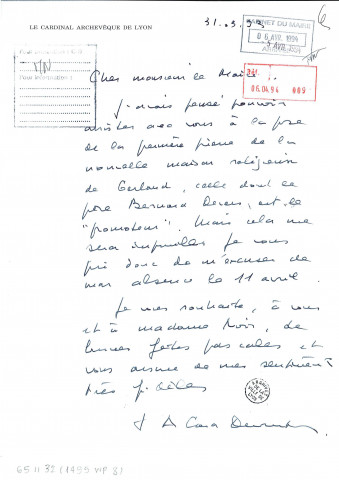 LE CARDINAL ARCHEVÊQUE DE LYON
31.03.94
CABINET DU MAIRE
06 AVR. 1994
06.04.94 009
Cher monsieur le Maire
J'avais pensé pouvoir
assister avec vous à la pose
de la première pierre de la
nouvelle maison religieuse
de Gerland, celle dont le
père Bernard Devert, est le
"promoteur". Mais cela me
sera impossible. Je vous
prie donc de m'excuser de
mon absence le 11 avril.
Je vous souhaite, à vous
et à madame Noir, de
bonnes fêtes pascales et
vous assure de mes sentiments
très fidèles
+ A Card
65 II 32 (1995 WP 8)